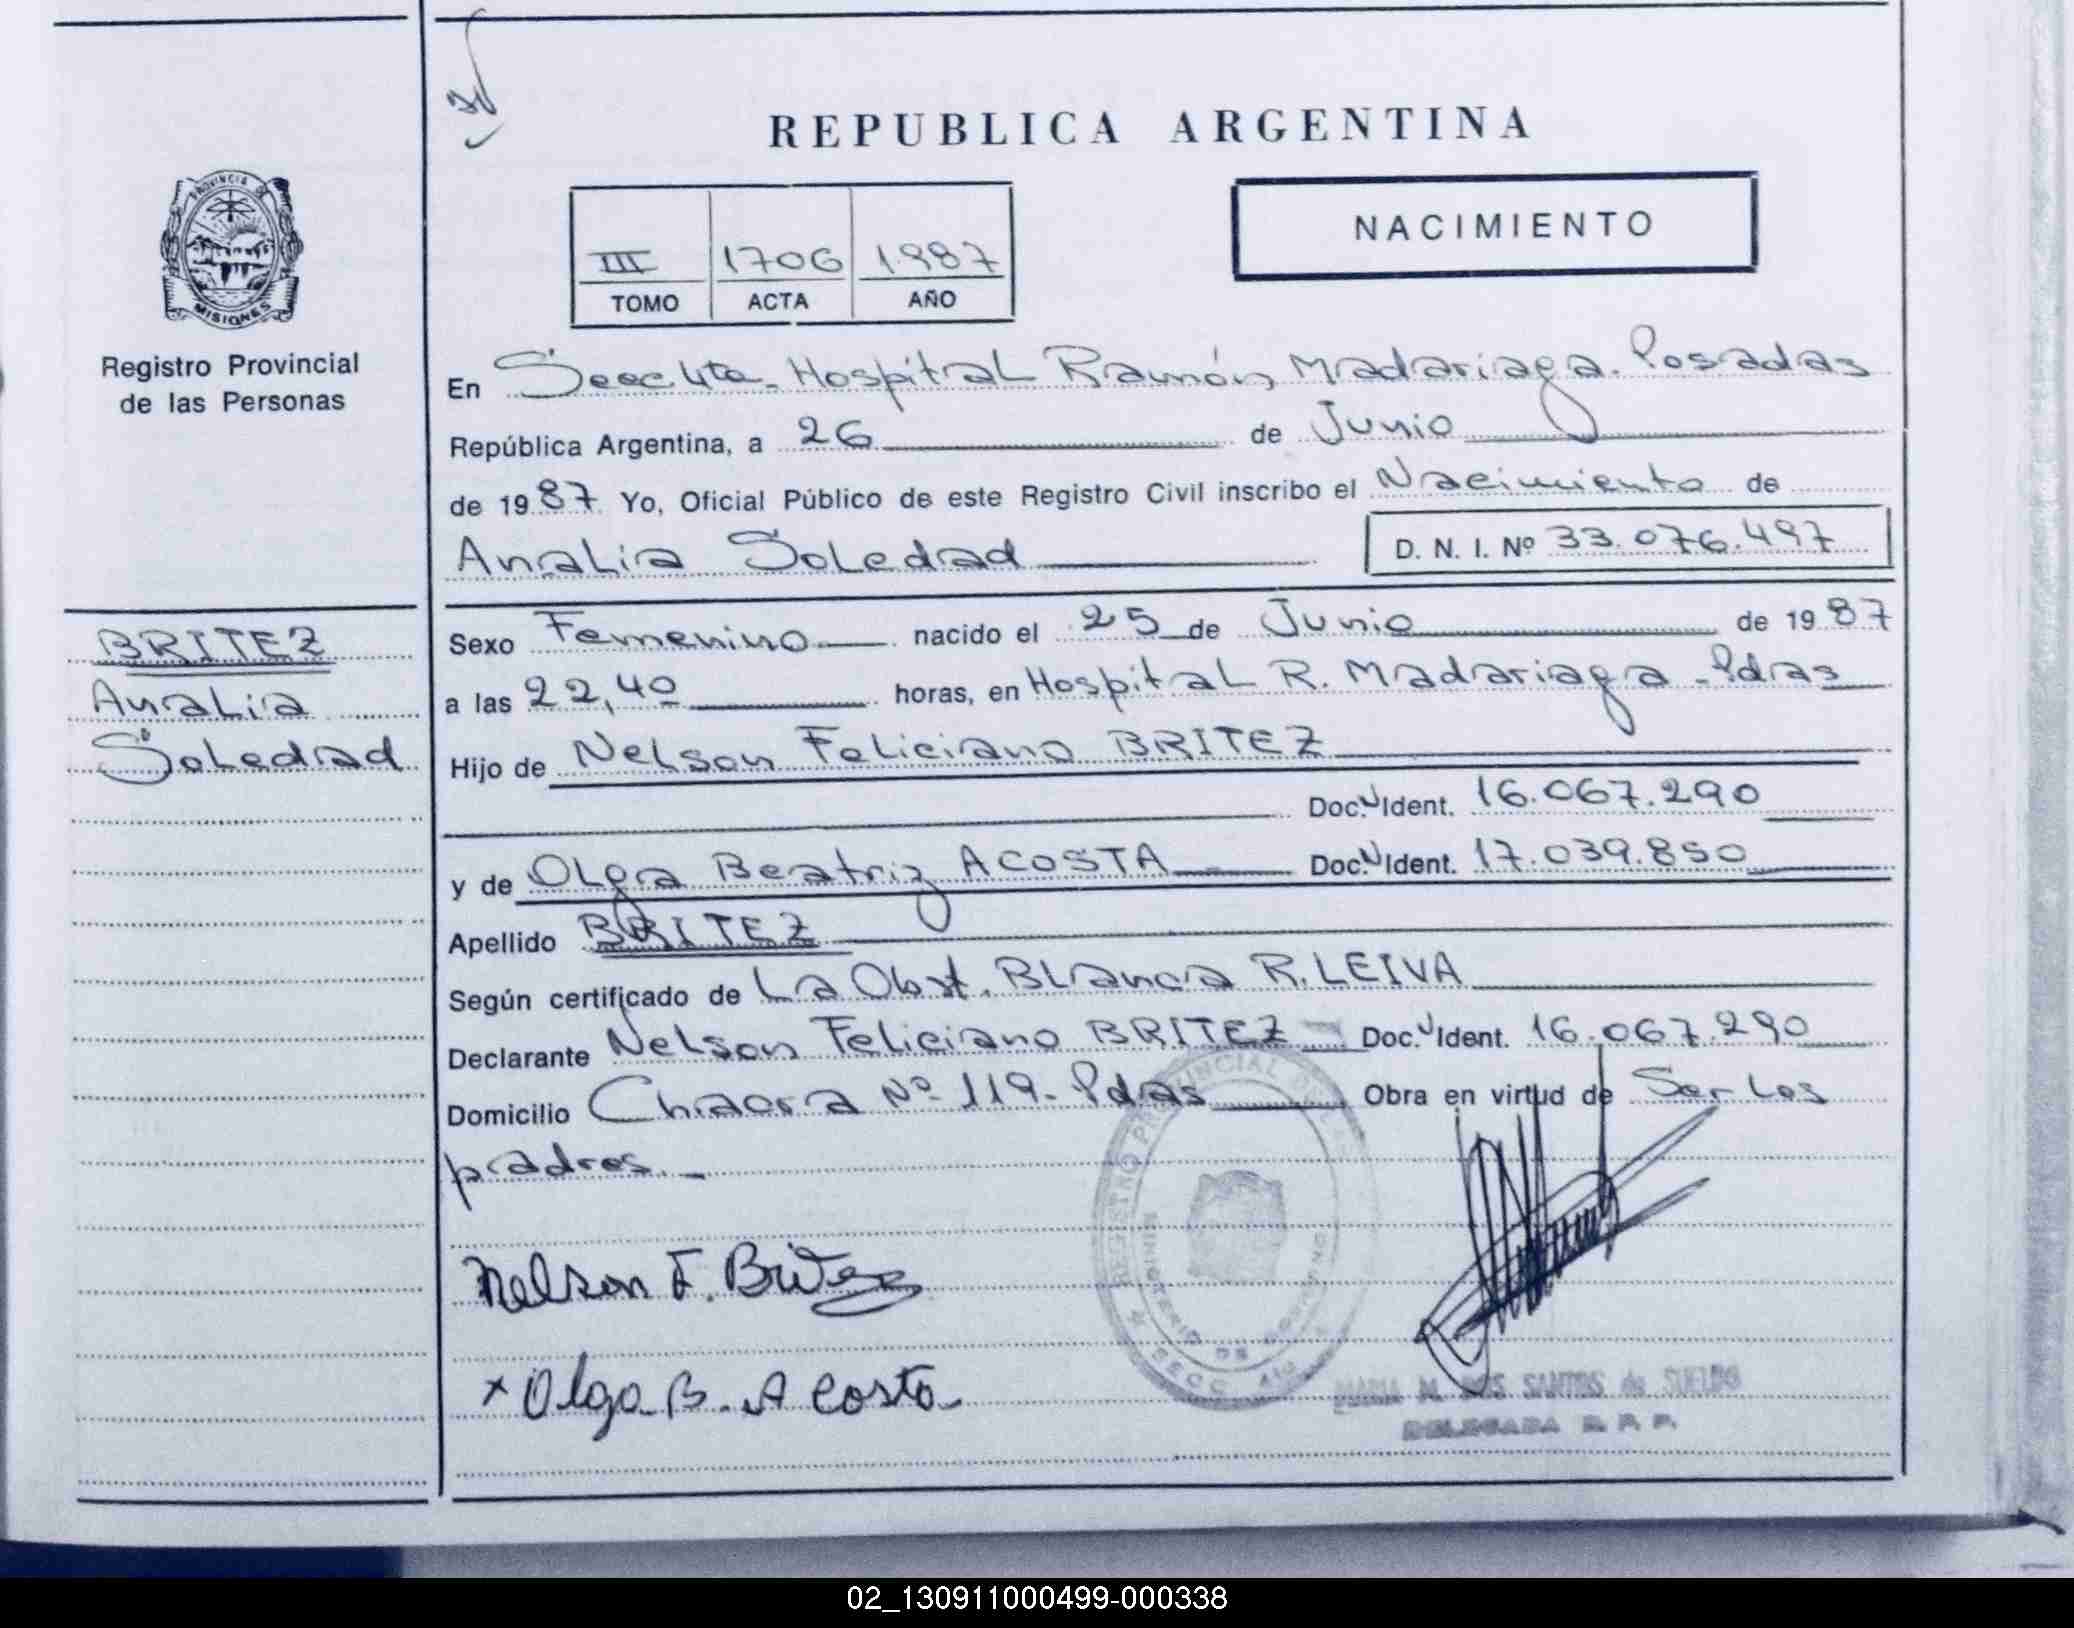 REPUBLICA ARGENTINA
NACIMIENTO
III 1706 1987
TOMO ACTA AÑO
PROVINCIA DE
MISIONES
Registro Provincial
de las Personas
BRITEZ
Analia
Soledad
En Secc 4ta - Hospital Ramón Madariaga. Posadas
República Argentina, a 26 de Junio
de 1987 Yo, Oficial Público de este Registro Civil inscribo el Nacimiento de
Analia Soledad D. N. I. Nº 33.076.497
Sexo Femenino nacido el 25 de Junio de 1987
a las 22,40 horas, en Hospital R. Madariaga - Pdas
Hijo de Nelson Feliciano BRITEZ
Doc. Ident. 16.067.290
y de Olga Beatriz ACOSTA Doc. Ident. 17.039.850
Apellido BRITEZ
Según certificado de La Obst. Blanca R. LEIVA
Declarante Nelson Feliciano BRITEZ Doc. Ident. 16.067.290
Domicilio Chacra Nº 119 - Pdas Obra en virtud de Ser los
padres. -
Nelson F. Britez
x Olga B. Acosta
REGISTRO PROVINCIAL DE
MINISTERIO DE GOBIERNO
MARIA M. DOS SANTOS de SUELDO
DELEGADA R. P. P.
02_130911000499-000338